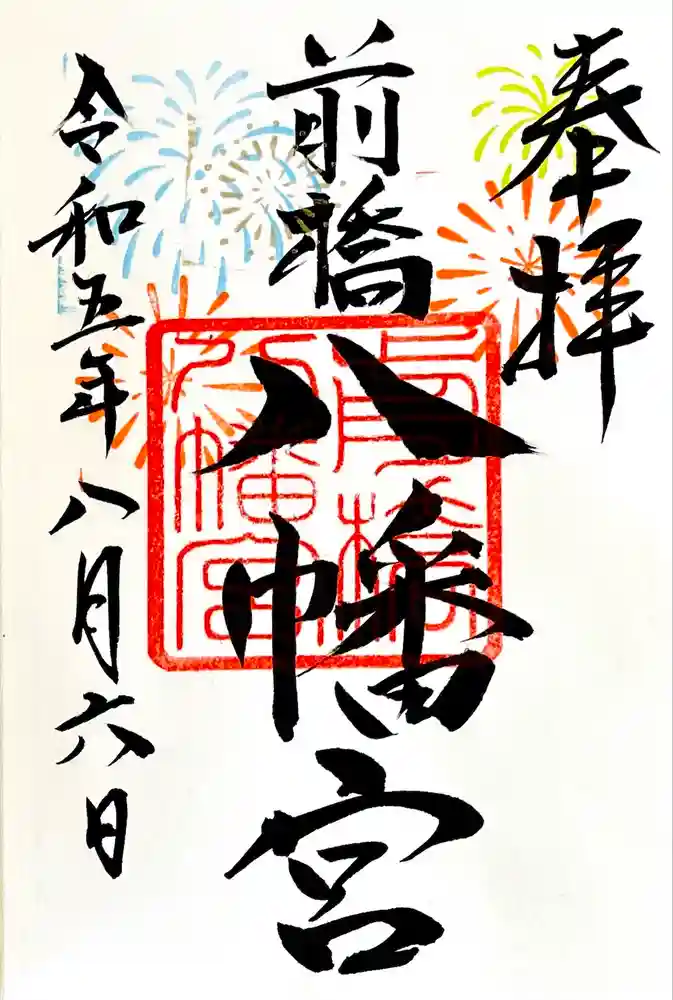 奉拝
前橋八幡宮
前橋八幡宮
令和五年八月六日